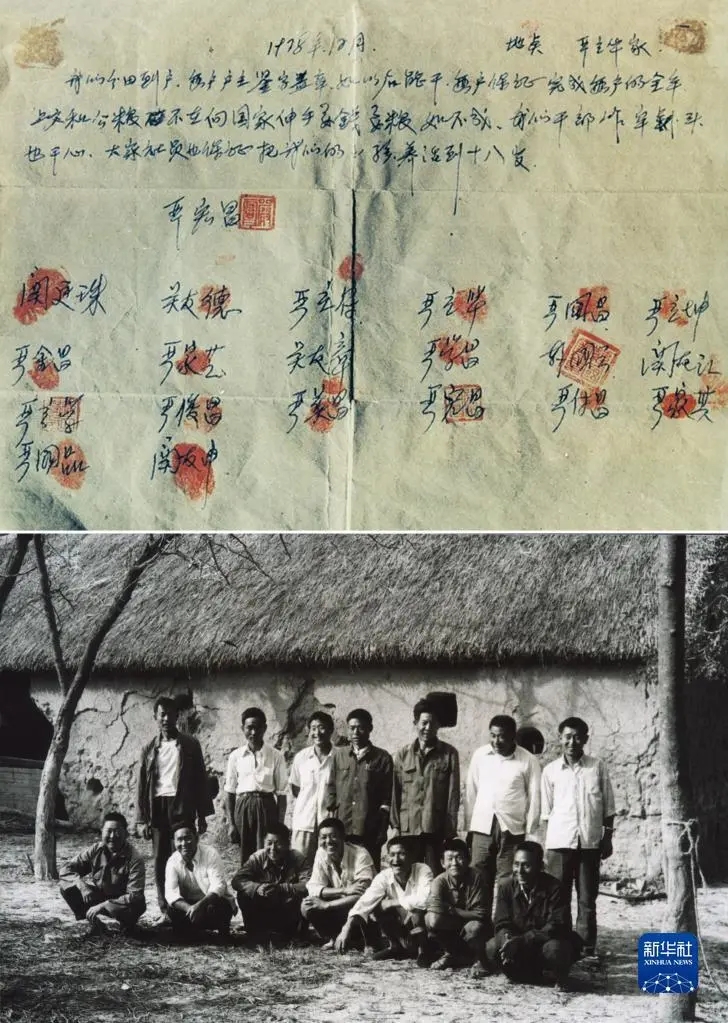 1978年12月. 地点 严立华家
我们分田到户,每户户主签字盖章,如以后能干,每户保证完成每户的全年
上交和公粮不在向国家伸手要錢要粮如不成,我们干部作牢刹头
也干心,大家社员也保证把我们的小孩养活到十八岁.
严宏昌
関廷珠 关友德 严立符 严立华 严国昌 严立坤
严金昌 严家芝 关友章 严学昌 韩国云 関友江
严立学 严俊昌 严美昌 严宏昌 严付昌 严家其
严国品 関友申
新华社
XINHUA NEWS